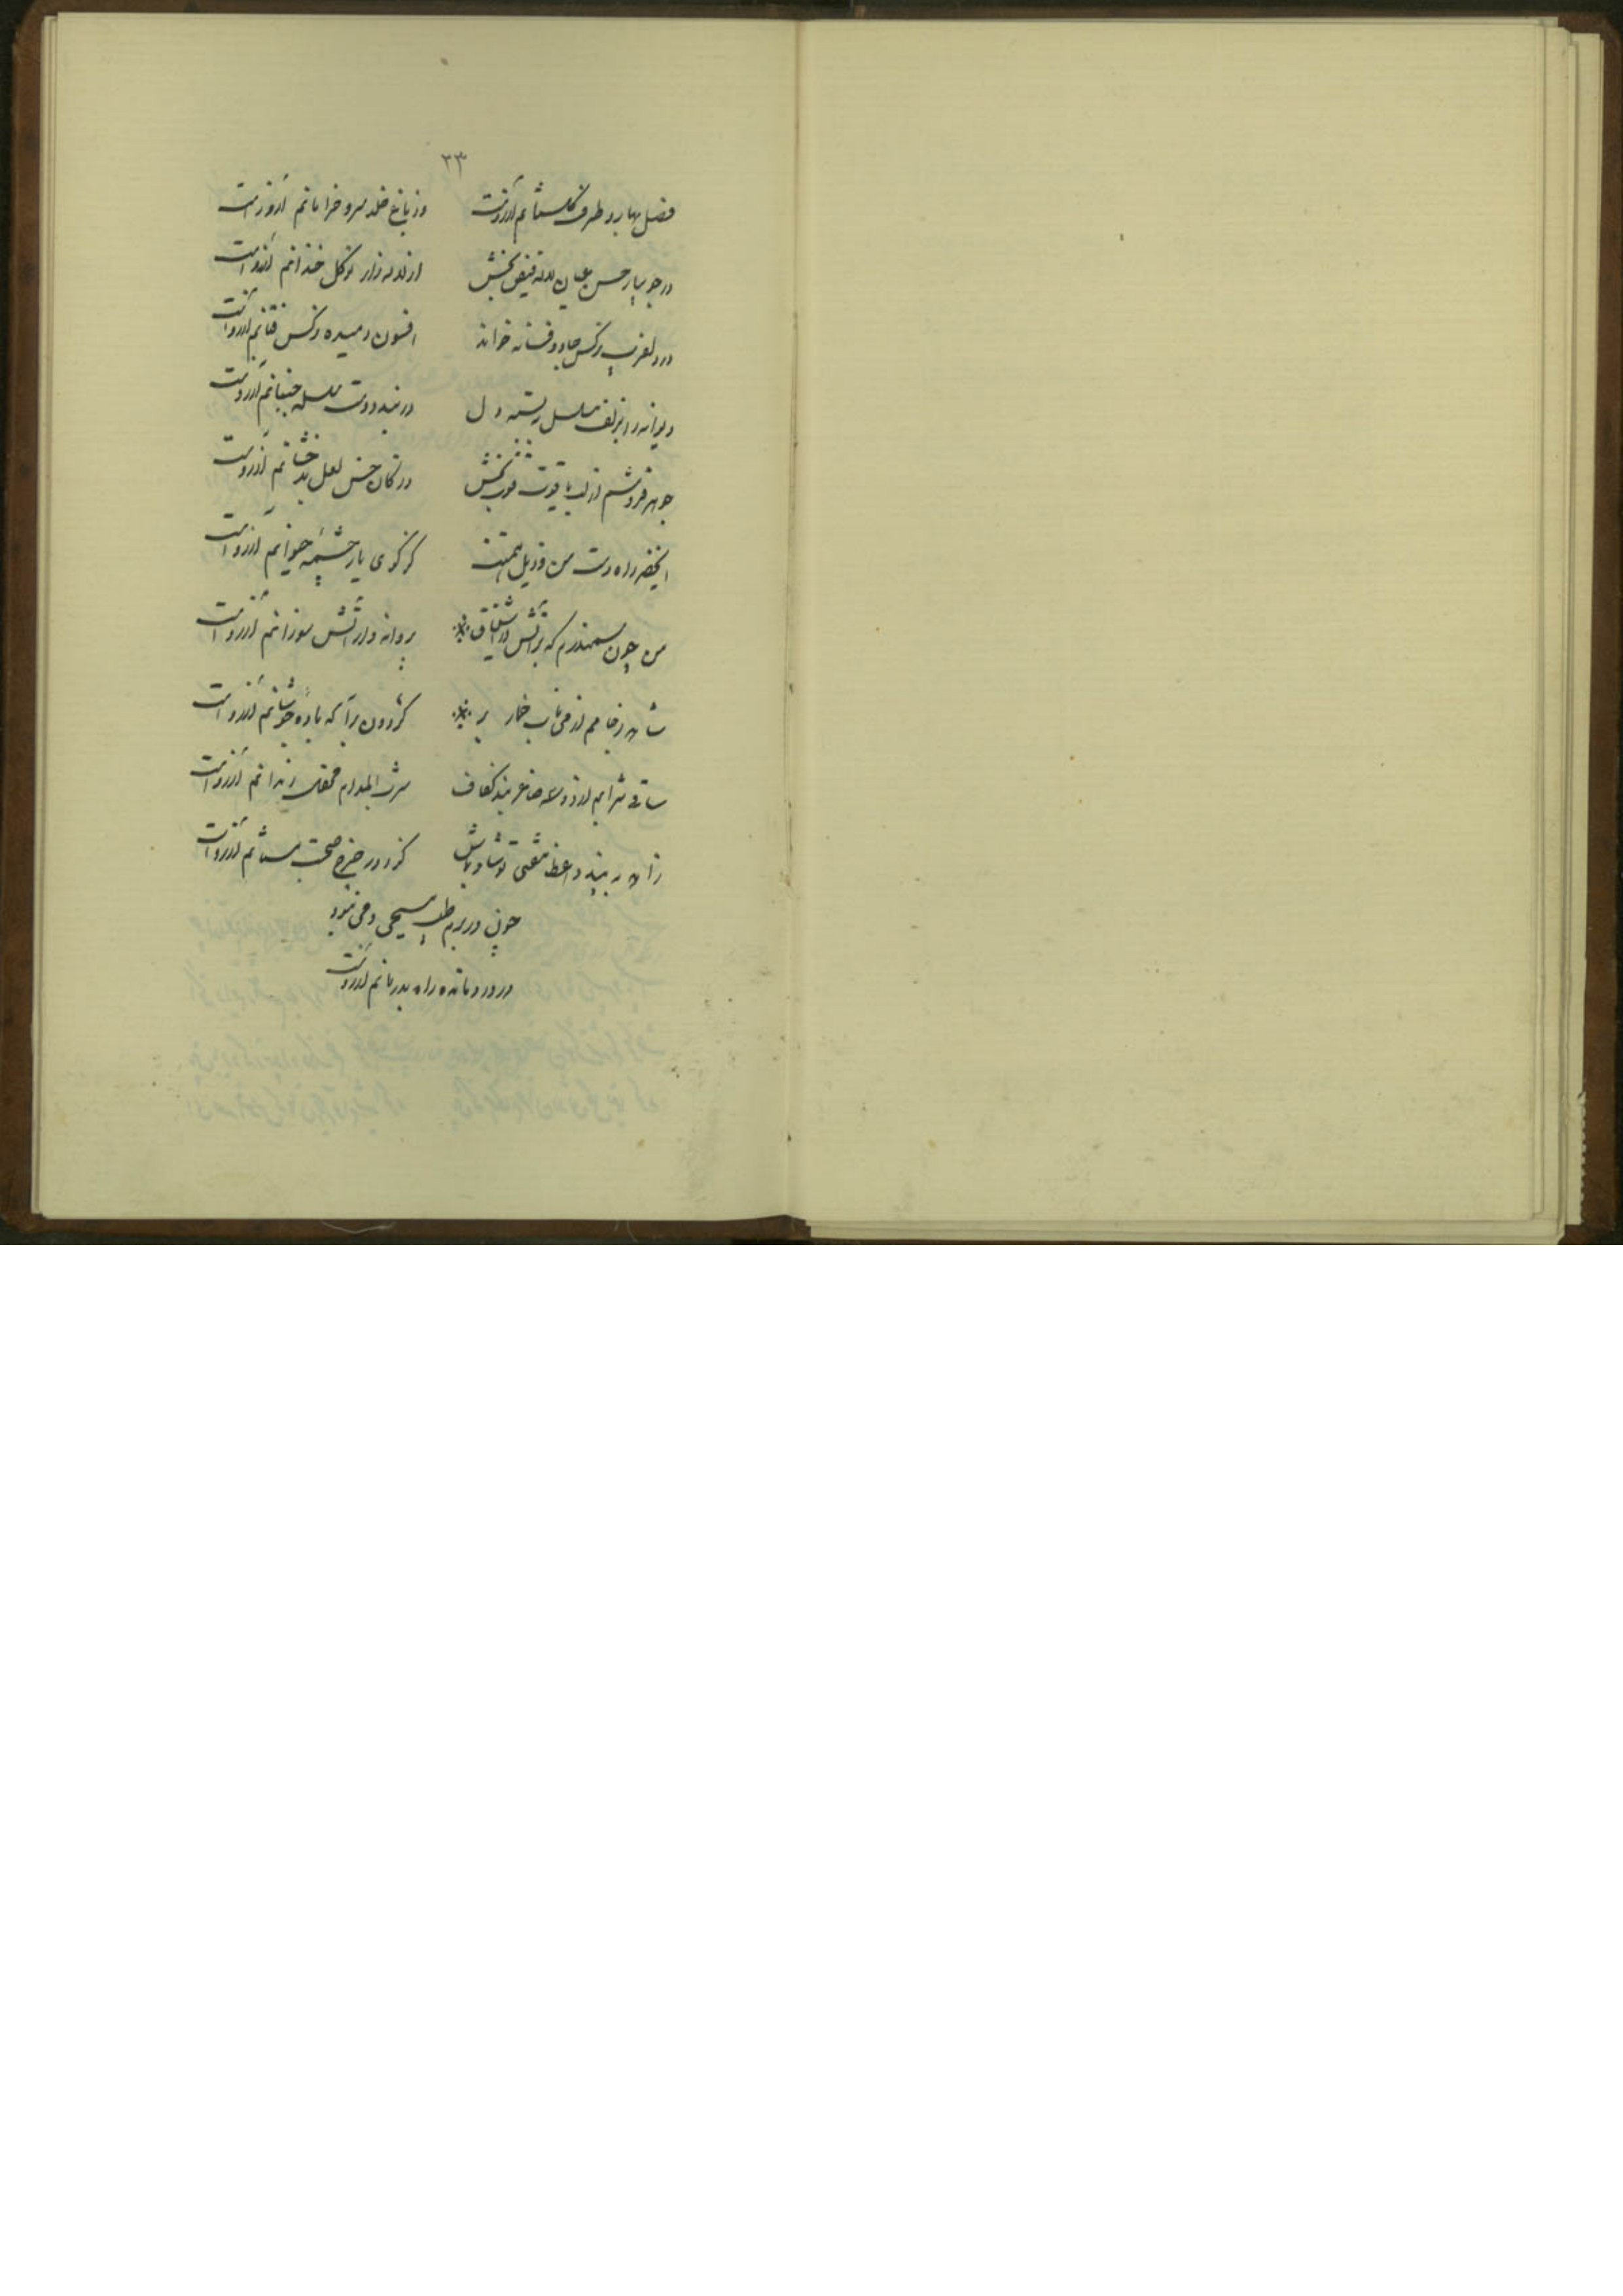 ۲۳
فصل بهار و طرف گلستانم آرزوست وز باغ خلد سرو خرامانم آرزوست
در جویبار حسن عیان لاله فیض بخش از لاله زار نو گل خندانم آرزوست
در دلفریب نرگس جادو فسانه خواند افسون دمیده نرگس فتانم آرزوست
دیوانه را بزلف مسلسل رشته دل در بند دوست سلسله جنبانم آرزوست
جوهر فروشم از لب یاقوت قوت بخش در کان حسن لعل بدخشانم آرزوست
ای خضر راه دست من و ذیل همتت کز کوی یار چشمه حیوانم آرزوست
من چون سمندرم که بر آتش در اشتیاق پروانه وار آتش سوزانم آرزوست
جامم از می ناب خمار بر که باده جوشانم آرزوست
ساقی شرابم از شرب المدام محفل رندانم آرزوست
زان واعظ متقی تو شاد باش کز در صحبت مستانم آرزوست
چون در برم طب مسیحی دمی نبود
در درد مانده راه بدرمانم آرزوست